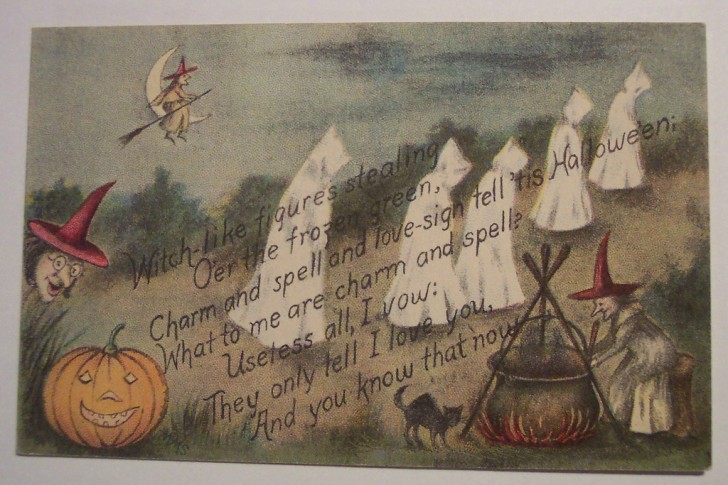 Witch-like figures stealing
O'er the frozen green,
Charm and spell and love-sigh tell 'tis Hallowe'en;
What to me are charm and spell?
Useless all, I vow:
They only tell I love you,
And you know that now